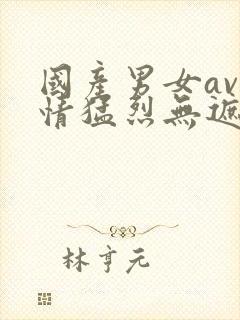 國產男女av
情猛烈無遮
林亨元